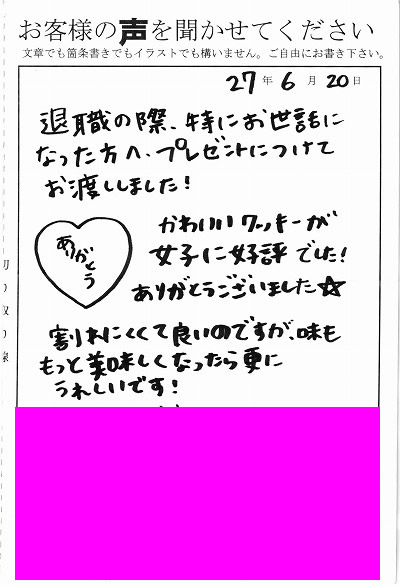 お客様の声を聞かせてください
文章でも箇条書きでもイラストでも構いません。ご自由にお書き下さい。
27年 6月 20日
退職の際、特にお世話に
なった方へ、プレゼントにつけて
お渡ししました!
かわいいクッキーが
女子に好評でした!
ありがとうございました☆
ありがとう
割れにくくて良いのですが、味も
もっと美味しくなったら更に
うれしいです!
切り取り線